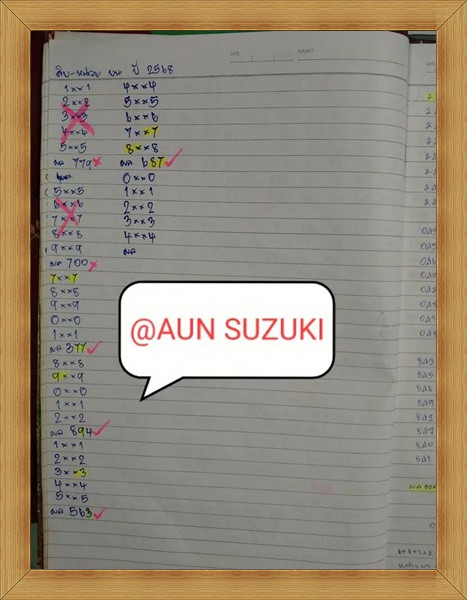 สิบ-หน่วย บน ปี 2568
1××1
2××2
3××3
4××4
5××5
ผล 779 ×
5××5
6××6
7××7
8××8
9××9
ผล 700 ×
7××7
8××8
9××9
0××0
1××1
ผล 377 ✓
8××8
9××9
0××0
1××1
2××2
ผล 894 ✓
1××1
2××2
3××3
4××4
5××5
ผล 563 ✓
4××4
5××5
6××6
7××7
8××8
ผล 687 ✓
0××0
1××1
2××2
3××3
4××4
ผล
@AUN SUZUKI